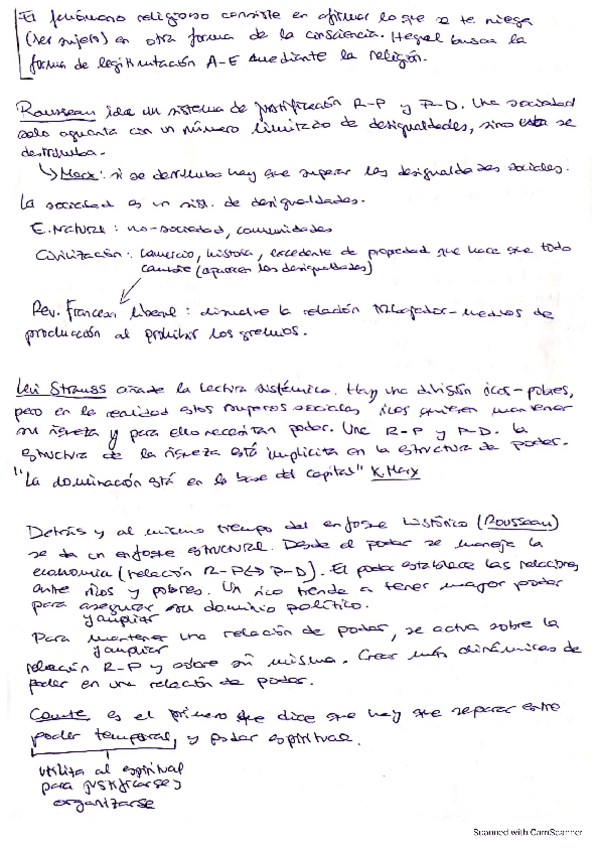 El fenómeno religioso consiste en afirmar lo que se te niega
(ser sujeto) en otra forma de la consciencia. Hegel busca la
forma de legitimación A-E mediante la religión.
Rousseau ide un sistema de justificación R-P y P-D. Una sociedad
solo aguanta con un número limitado de desigualdades, sino esta se
derrumba.
↳ Marx: si se derrumba hay que superar las desigualdades sociales.
La sociedad es un sist. de desigualdades.
E. Natural: no-sociedad, comunidades
Civilización: Comercio, historia, excedente de propiedad que hace que todo
cambie (aparecen las desigualdades)
Rev. Francesa liberal: disuelve la relación trabajador-medios de
producción al prohibir los gremios.
Levi Strauss añade la lectura sistémica. Hay una división ricos-pobres,
pero en la realidad estos grupos sociales, ricos quieren mantener
su riqueza y para ello necesitan poder. Une R-P y P-D. La
estructura de la riqueza está implícita en la estructura de poder.
"La dominación está en la base del capital" K. Marx
Detrás y al mismo tiempo del enfoque histórico (Rousseau)
se da un enfoque estructural. Desde el poder se maneja la
economía (relación R-P↔P-D). El poder establece las relaciones
entre ricos y pobres. Un rico tiende a tener mayor poder
para asegurar su dominio político.
y ampliar
Para mantener una relación de poder, se actua sobre la
y ampliar
relación R-P y sobre sí misma. Crear más dinámicas de
poder en una relación de poder.
Comte es el primero que dice que hay que separar entre
poder temporal, y poder espiritual.
utiliza al espiritual
para justificarse y
organizarse
Scanned with CamScanner